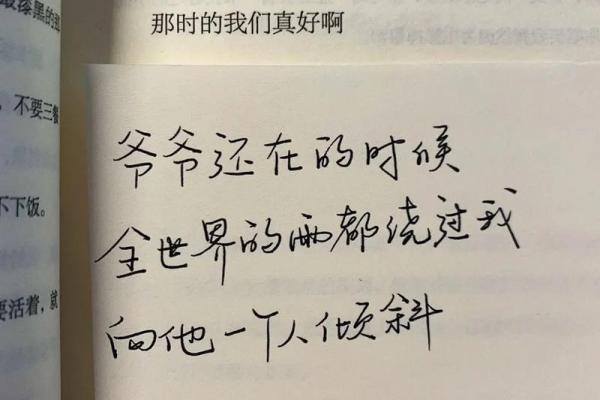 那时的我们真好啊
不要三餐
下下饭。
要活着,就
爷爷还在的时候
全世界的雨都绕过我
向他一个人倾斜